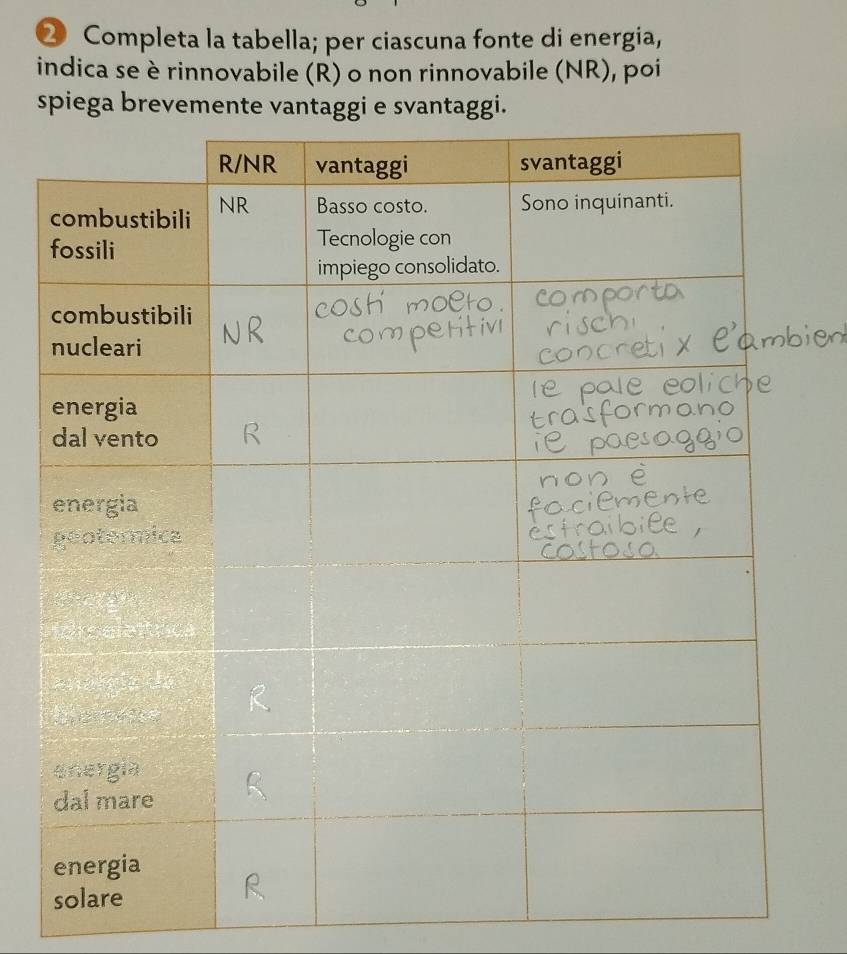 2 Completa la tabella; per ciascuna fonte di energia,
indica se è rinnovabile (R) o non rinnovabile (NR), poi
spiega brevemente vantaggi e svantaggi.
R/NR vantaggi svantaggi
combustibili
fossili
NR
Basso costo.
Tecnologie con
impiego consolidato.
Sono inquinanti.
combustibili
nucleari
NR
costi molto
competitivi
comporta
rischi
concreti x l'ambien
energia
dal vento
R
le pale eoliche
trasformano
il paesaggio
energia
geotermica
non è
facilmente
estraibile,
costosa
energia
R
energia
dal mare
R
energia
solare
R